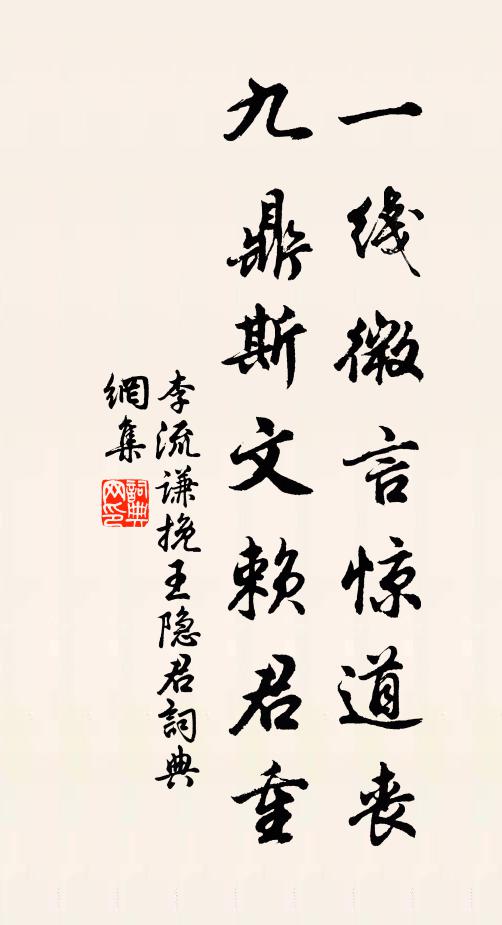 一线微言惊道丧
九鼎斯文赖君重
李流谦挽王隐君詞典
網集
詞典网印